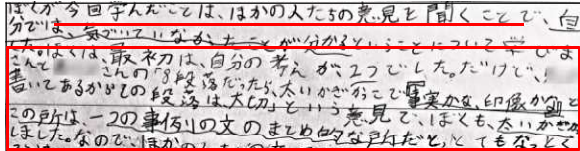 ぼくが今回学んだことは、ほかの人たちの意見を聞くことで、自
分では、気づいていなかったことが分かるということについて学びま
した。ぼくは、最初は、自分の考えが、2つでした。だけど、
さんと さんの「8段落だったら、太いかぎかっこで事実かな、印像か
書いてあるから の段落は大切」という意見で、ぼくも、太いかぎか
この所は、-2の事例の文のまとめ的な所だと、とてもなっとく
しました。なので、ほかの